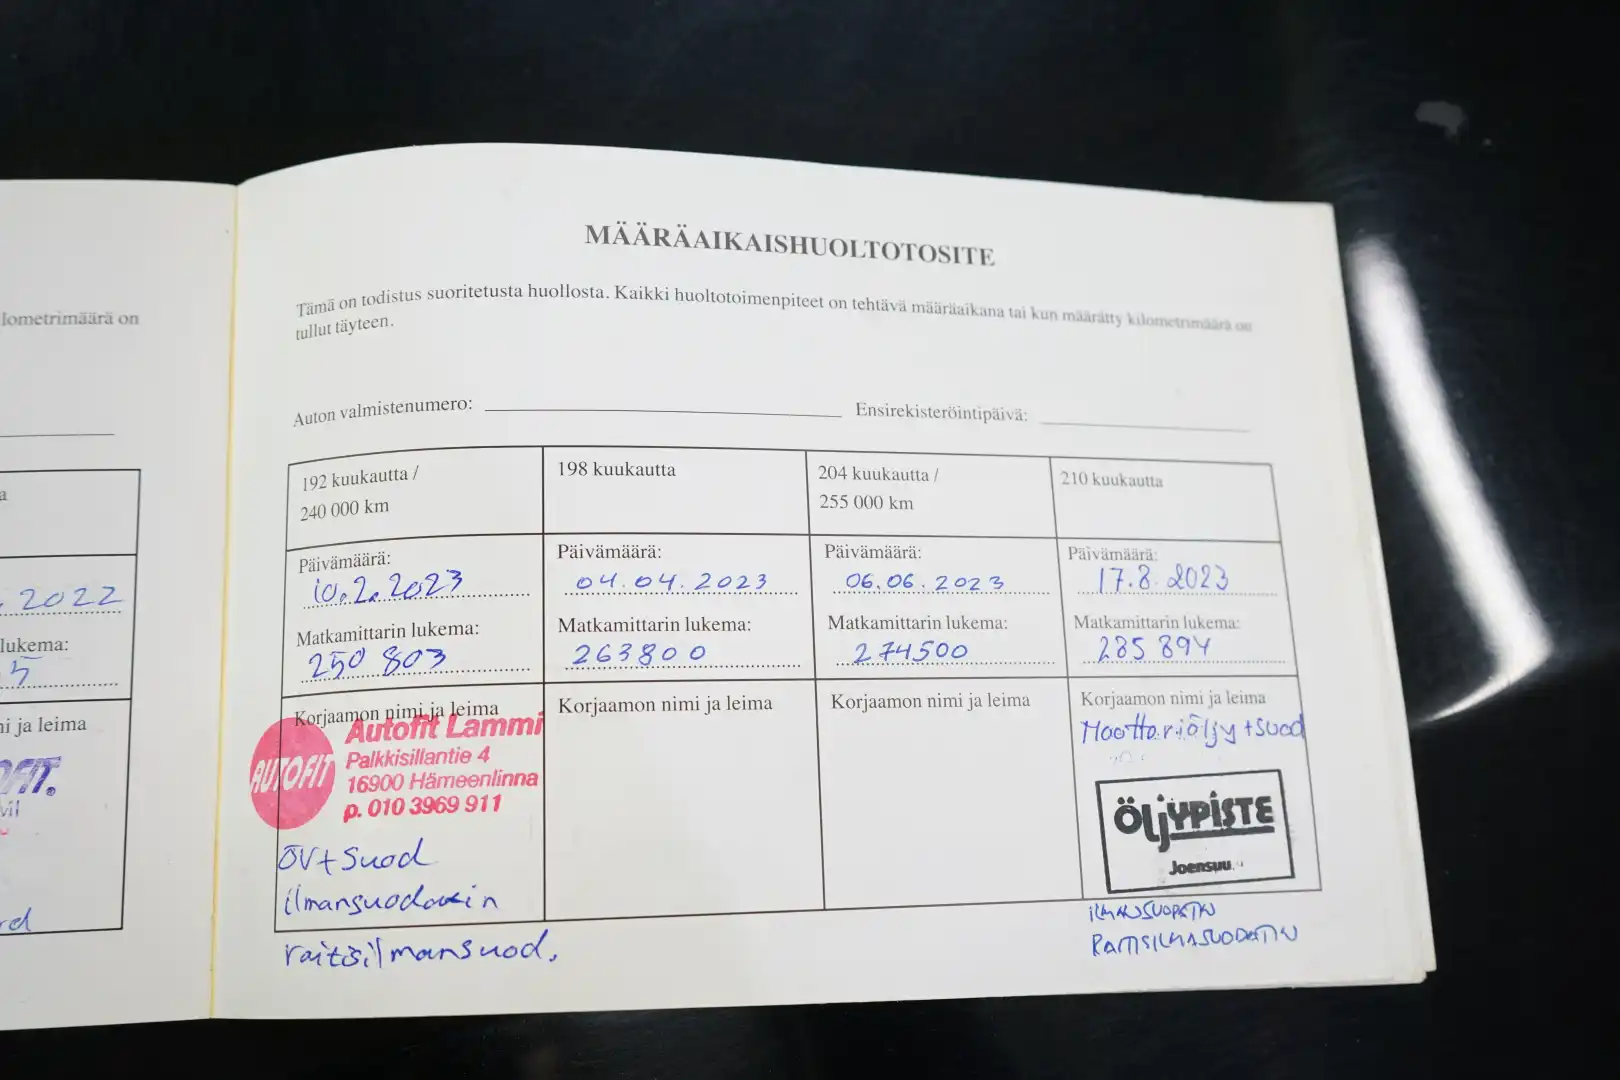 lometrimäärä on
a
. 2022
lukema:
5
ni ja leima
OFIT.
vil
rd
MÄÄRÄAIKAISHUOLTOTOSITE
Tämä on todistus suoritetusta huollosta. Kaikki huoltotoimenpiteet on tehtävä määräaikana tai kun määrätty kilometrimäärä on
tullut täyteen.
Auton valmistenumero:
Ensirekisteröintipäivä:
192 kuukautta /
240 000 km
Päivämäärä:
10.2.2023
Matkamittarin lukema:
250 803
Korjaamon nimi ja leima
AUTOFIT
Autofit Lammi
Palkkisillantie 4
16900 Hämeenlinna
p. 010 3969 911
ÖV+Suod
ilmansuodatin
raitisilmansuod.
198 kuukautta
Päivämäärä:
04.04.2023
Matkamittarin lukema:
263800
Korjaamon nimi ja leima
204 kuukautta /
255 000 km
Päivämäärä:
06.06.2023
Matkamittarin lukema:
274500
Korjaamon nimi ja leima
210 kuukautta
Päivämäärä:
17.8.2023
Matkamittarin lukema:
285 894
Korjaamon nimi ja leima
Moottoriöljy+suod
ÖLJYPISTE
Joensuu
ILMANSUODATIN
RAITISILMASUODATIN